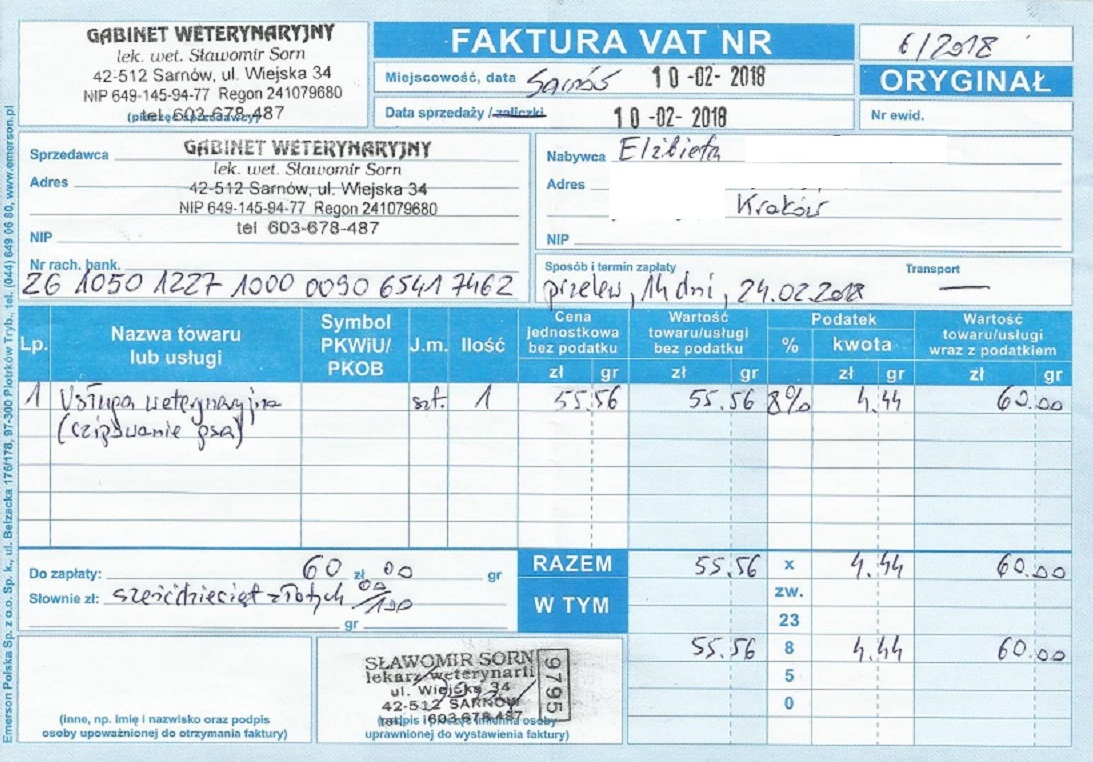 GABINET WETERYNARYJNY
lek. wet. Sławomir Sorn
42-512 Sarnów, ul. Wiejska 34
NIP 649-145-94-77 Regon 241079680
tel 603-678-487
(pieczęć sprzedawcy)
FAKTURA VAT NR 6/2018
Miejscowość, data Sarnów 10-02-2018
ORYGINAŁ
Data sprzedaży / zaliczki 10-02-2018
Nr ewid.
Sprzedawca
Adres
NIP
GABINET WETERYNARYJNY
lek. wet. Sławomir Sorn
42-512 Sarnów, ul. Wiejska 34
NIP 649-145-94-77 Regon 241079680
tel 603-678-487
Nr rach. bank.
26 1050 1227 1000 0090 6541 7462
Nabywca Elżbieta
Adres
Kraków
NIP
Sposób i termin zapłaty
Transport
przelew, 14 dni, 24.02.2018 —
Lp. Nazwa towaru lub usługi Symbol PKWiU/ PKOB J.m. Ilość Cena jednostkowa bez podatku zł gr Wartość towaru/usługi bez podatku zł gr Podatek % kwota zł gr Wartość towaru/usługi wraz z podatkiem zł gr
1 Usługa weterynaryjna szt. 1 55.56 55.56 8% 4.44 60.00
(czipowanie psa)
Do zapłaty: 60 zł 00 gr
Słownie zł: sześćdziesiąt złotych 00/100
gr
RAZEM 55.56 x 4.44 60.00
W TYM
zw.
23
55.56 8 4.44 60.00
5
0
(inne, np. Imię i nazwisko oraz podpis
osoby upoważnionej do otrzymania faktury)
SŁAWOMIR SORN
lekarz weterynarii
ul. Wiejska 34
42-512 SARNÓW
tel. 603 678 487
9795
(podpis i pieczęć imienna osoby
uprawnionej do wystawienia faktury)
Emerson Polska Sp. z o.o. Sp. k., ul. Belzacka 176/178, 97-300 Piotrków Tryb., tel. (044) 649 06 80, www.emerson.pl